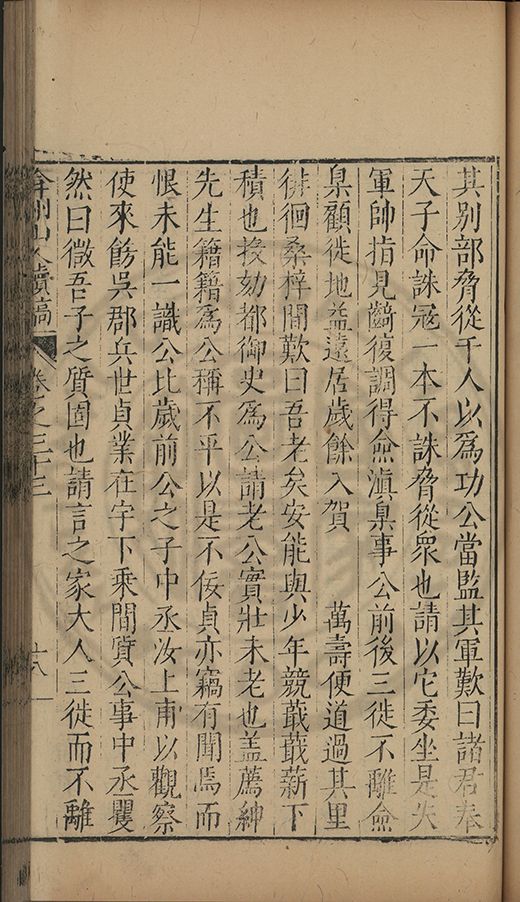 其别部脅從千人以爲功公當監其軍歎曰諸君奉
天子命誅冦一本不誅脅從眾也請以它委坐是失
軍帥指見齮復調得僉滇臬事公前後三徙不離僉
臬顧徙地益遠居歲餘入賀 萬壽便道過其里
徘徊桑梓間歎曰吾老矣安能與少年競蕺蕺薪下
積也投劾都御史爲公請老公實壯未老也盖薦紳
先生籍籍爲公稱不平以是不佞貞亦竊有聞焉而
恨未能一識公比歲前公之子中丞汝上甫以觀察
使來飭吳郡兵世貞業在宇下乘間質公事中丞矍
然曰微吾子之質固也請言之家大人三徙而不離
弇州山人續稿 卷之三十三 十八